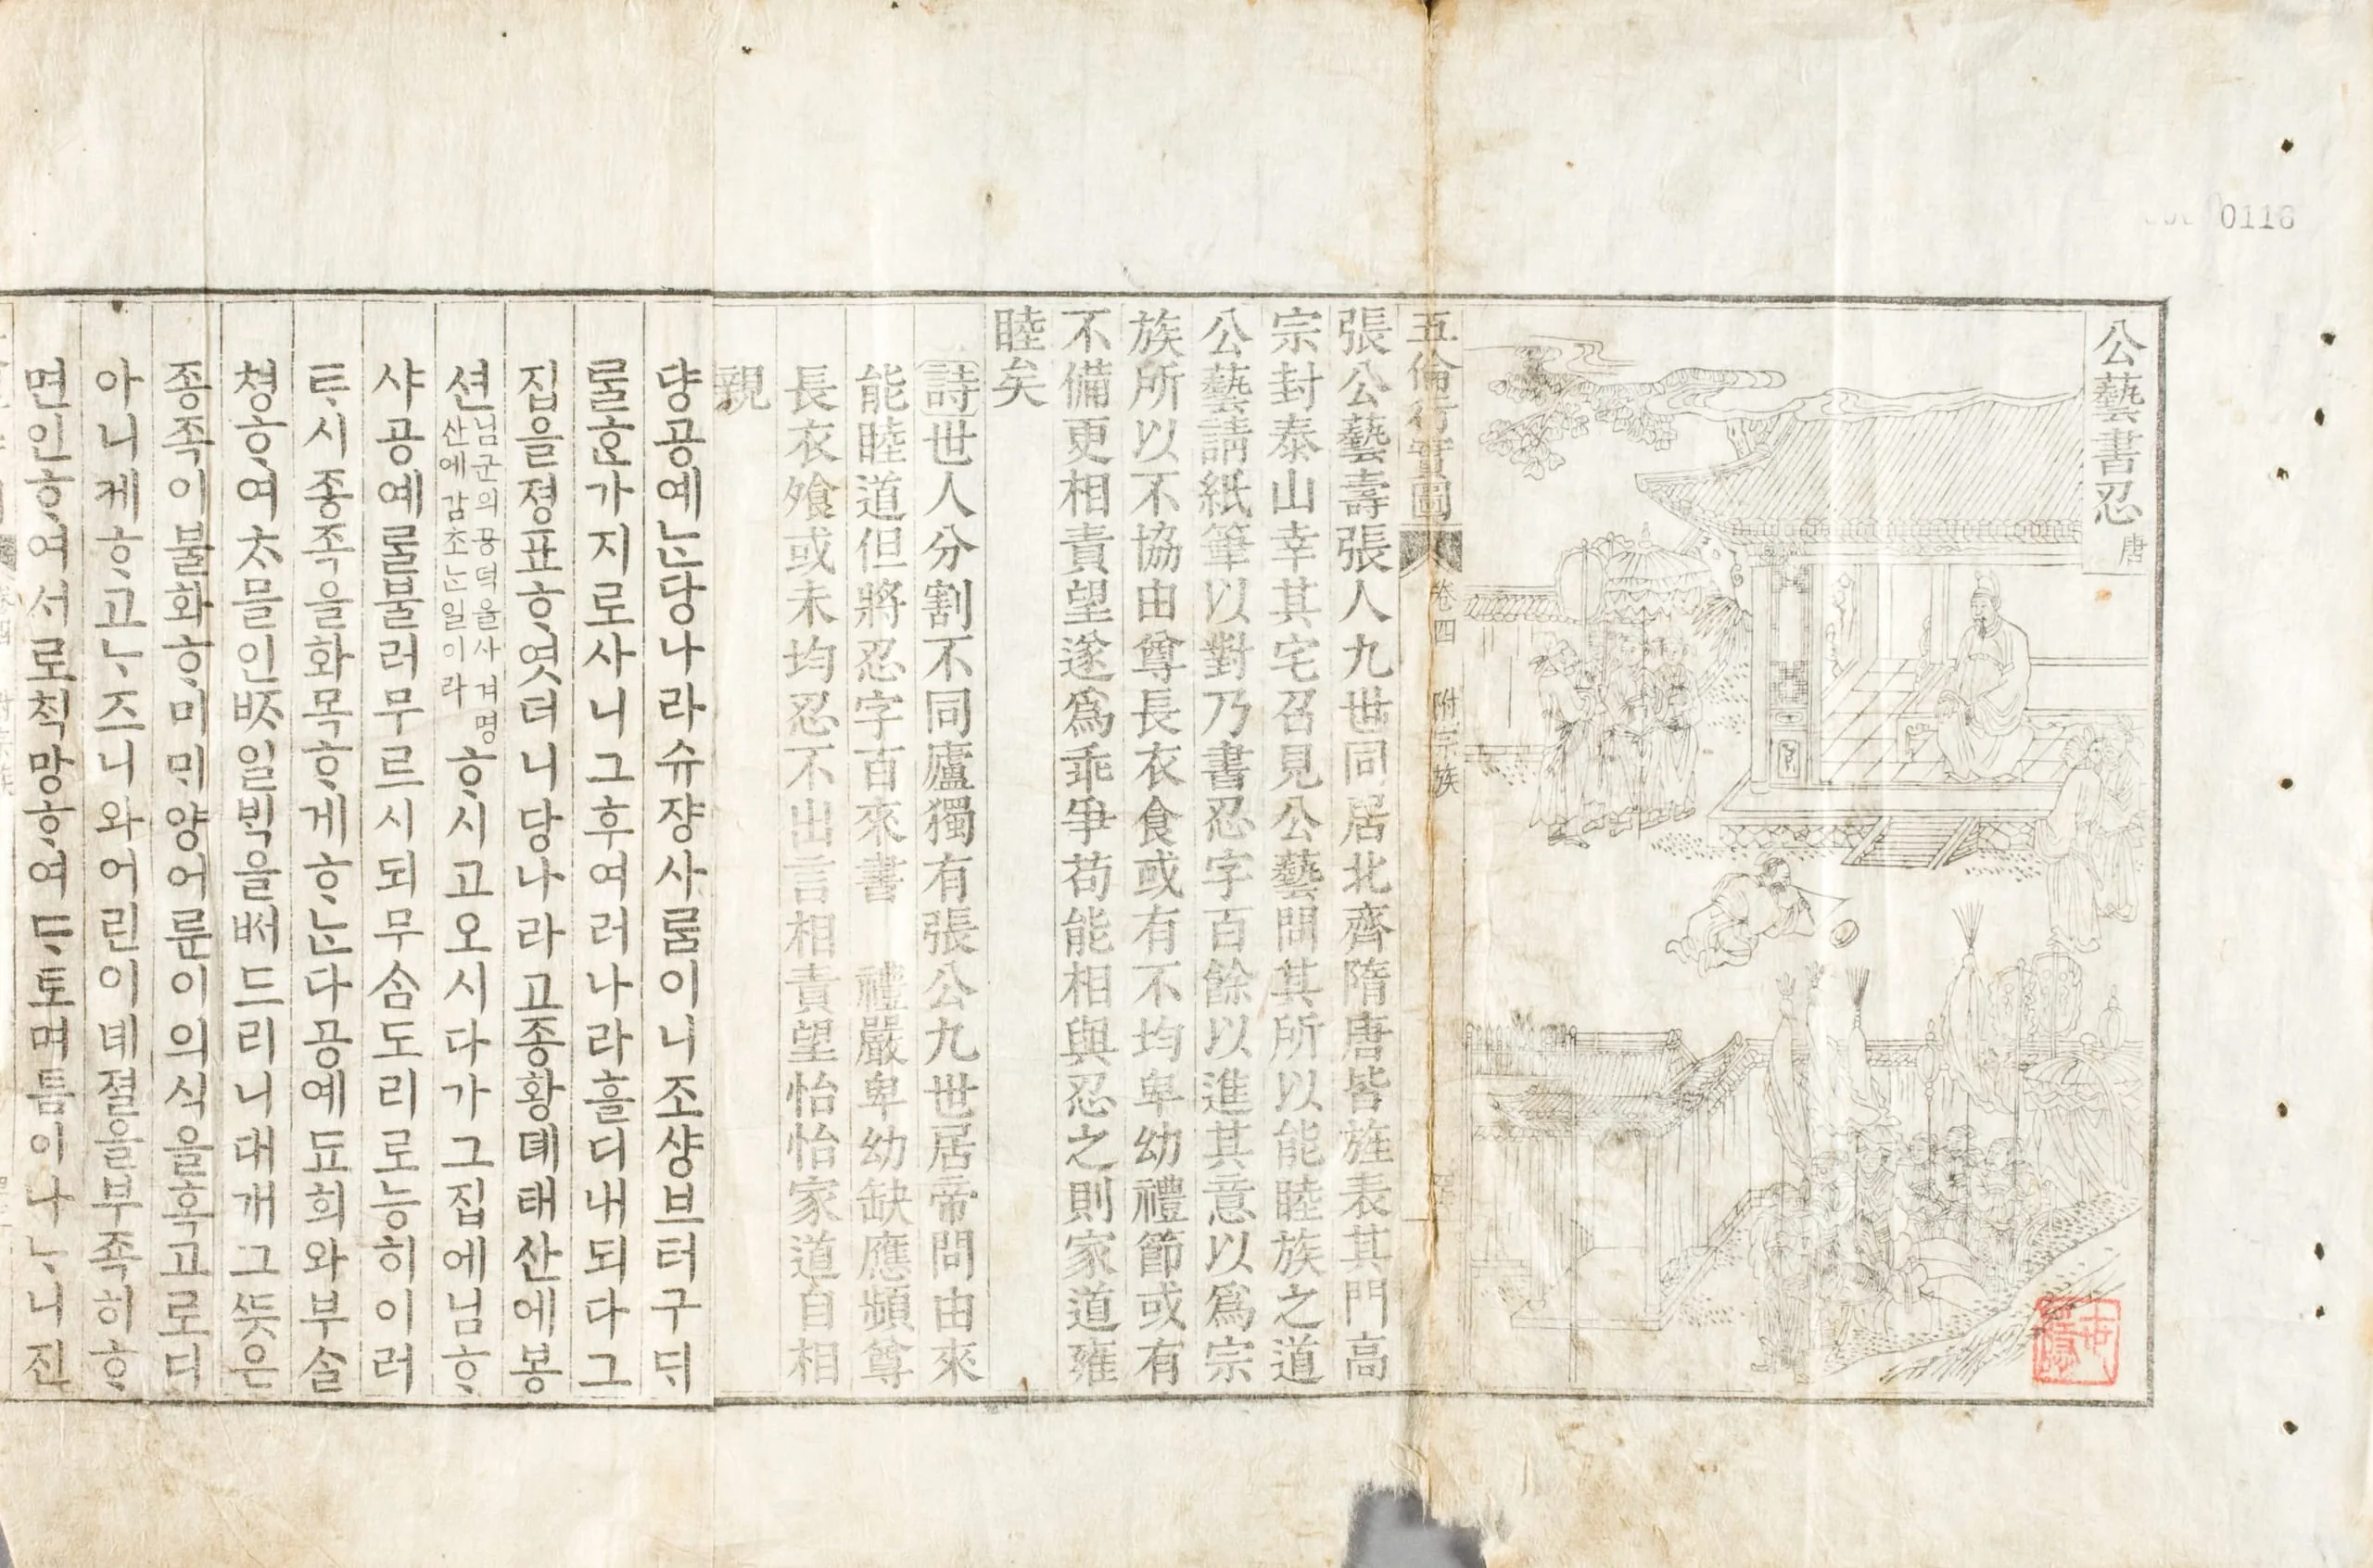 公藝書忍 唐
五倫行實圖 卷四 附宗族
張公藝壽張人九世同居北齊隋唐皆旌表其門高
宗封泰山幸其宅召見公藝問其所以能睦族之道
公藝請紙筆以對乃書忍字百餘以進其意以爲宗
族所以不協由尊長衣食或有不均卑幼禮節或有
不備更相責望遂爲乖爭苟能相與忍之則家道雍
睦矣
詩世人分割不同廬獨有張公九世居帝問由來
能睦道但將忍字百來書 禮嚴卑幼缺應頻尊
長衣飱或未均忍不出言相責望怡怡家道自相
親
댱공예ᄂᆞᆫ당나라슈쟝사ᄅᆞᆷ이니조샹브터구ᄃᆡ
ᄅᆞᆯᄒᆞᆫ가지로사니그후여러나라흘디내되다그
집을졍표ᄒᆞ엿더니당나라고종황뎨태산에봉
션 님군의공덕을사겨명산에감초ᄂᆞᆫ일이라 ᄒᆞ시고오시다가그집에님ᄒᆞ
샤공예ᄅᆞᆯ불러무르시되무ᄉᆞᆷ도리로능히이러
ᄐᆞ시종족을화목ᄒᆞ게ᄒᆞᄂᆞᆫ다공예됴희와부슬
쳥ᄒᆞ여ᄎᆞ믈인ᄧᆞ일ᄇᆡᆨ을ᄡᅥ드리니대개그ᄯᅳᆺ은
종족이불화ᄒᆞ미ᄆᆡ양어룬이의식을혹고로디
아니케ᄒᆞ고ᄂᆞ즈니와어린이녜졀을부족히ᄒᆞ
면인ᄒᆞ여서로ᄎᆡᆨ망ᄒᆞ여ᄃᆞ토며틈이나ᄂᆞ니진